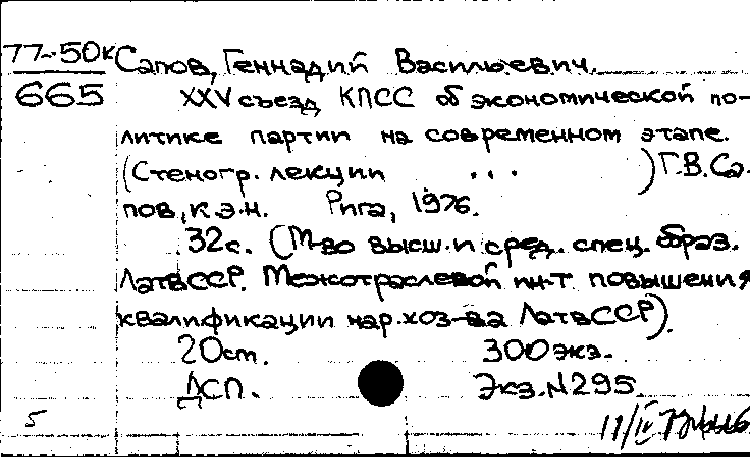 77-50к Сапов, Геннадий Васильевич.
665 XXV съезд КПСС об экономической по-
литике партии на современном этапе.
(Стеногр. лекции ... ) Г.В.Са-
пов, к.э.н. Рига, 1976.
32с. (М-во высш. и сред. спец. образ.
ЛатвССР. Межотраслевой ин-т повышения
квалификации нар. хоз-ва ЛатвССР).
20см. 300экз.
ДСП. Экз.N295.
5 11/IV